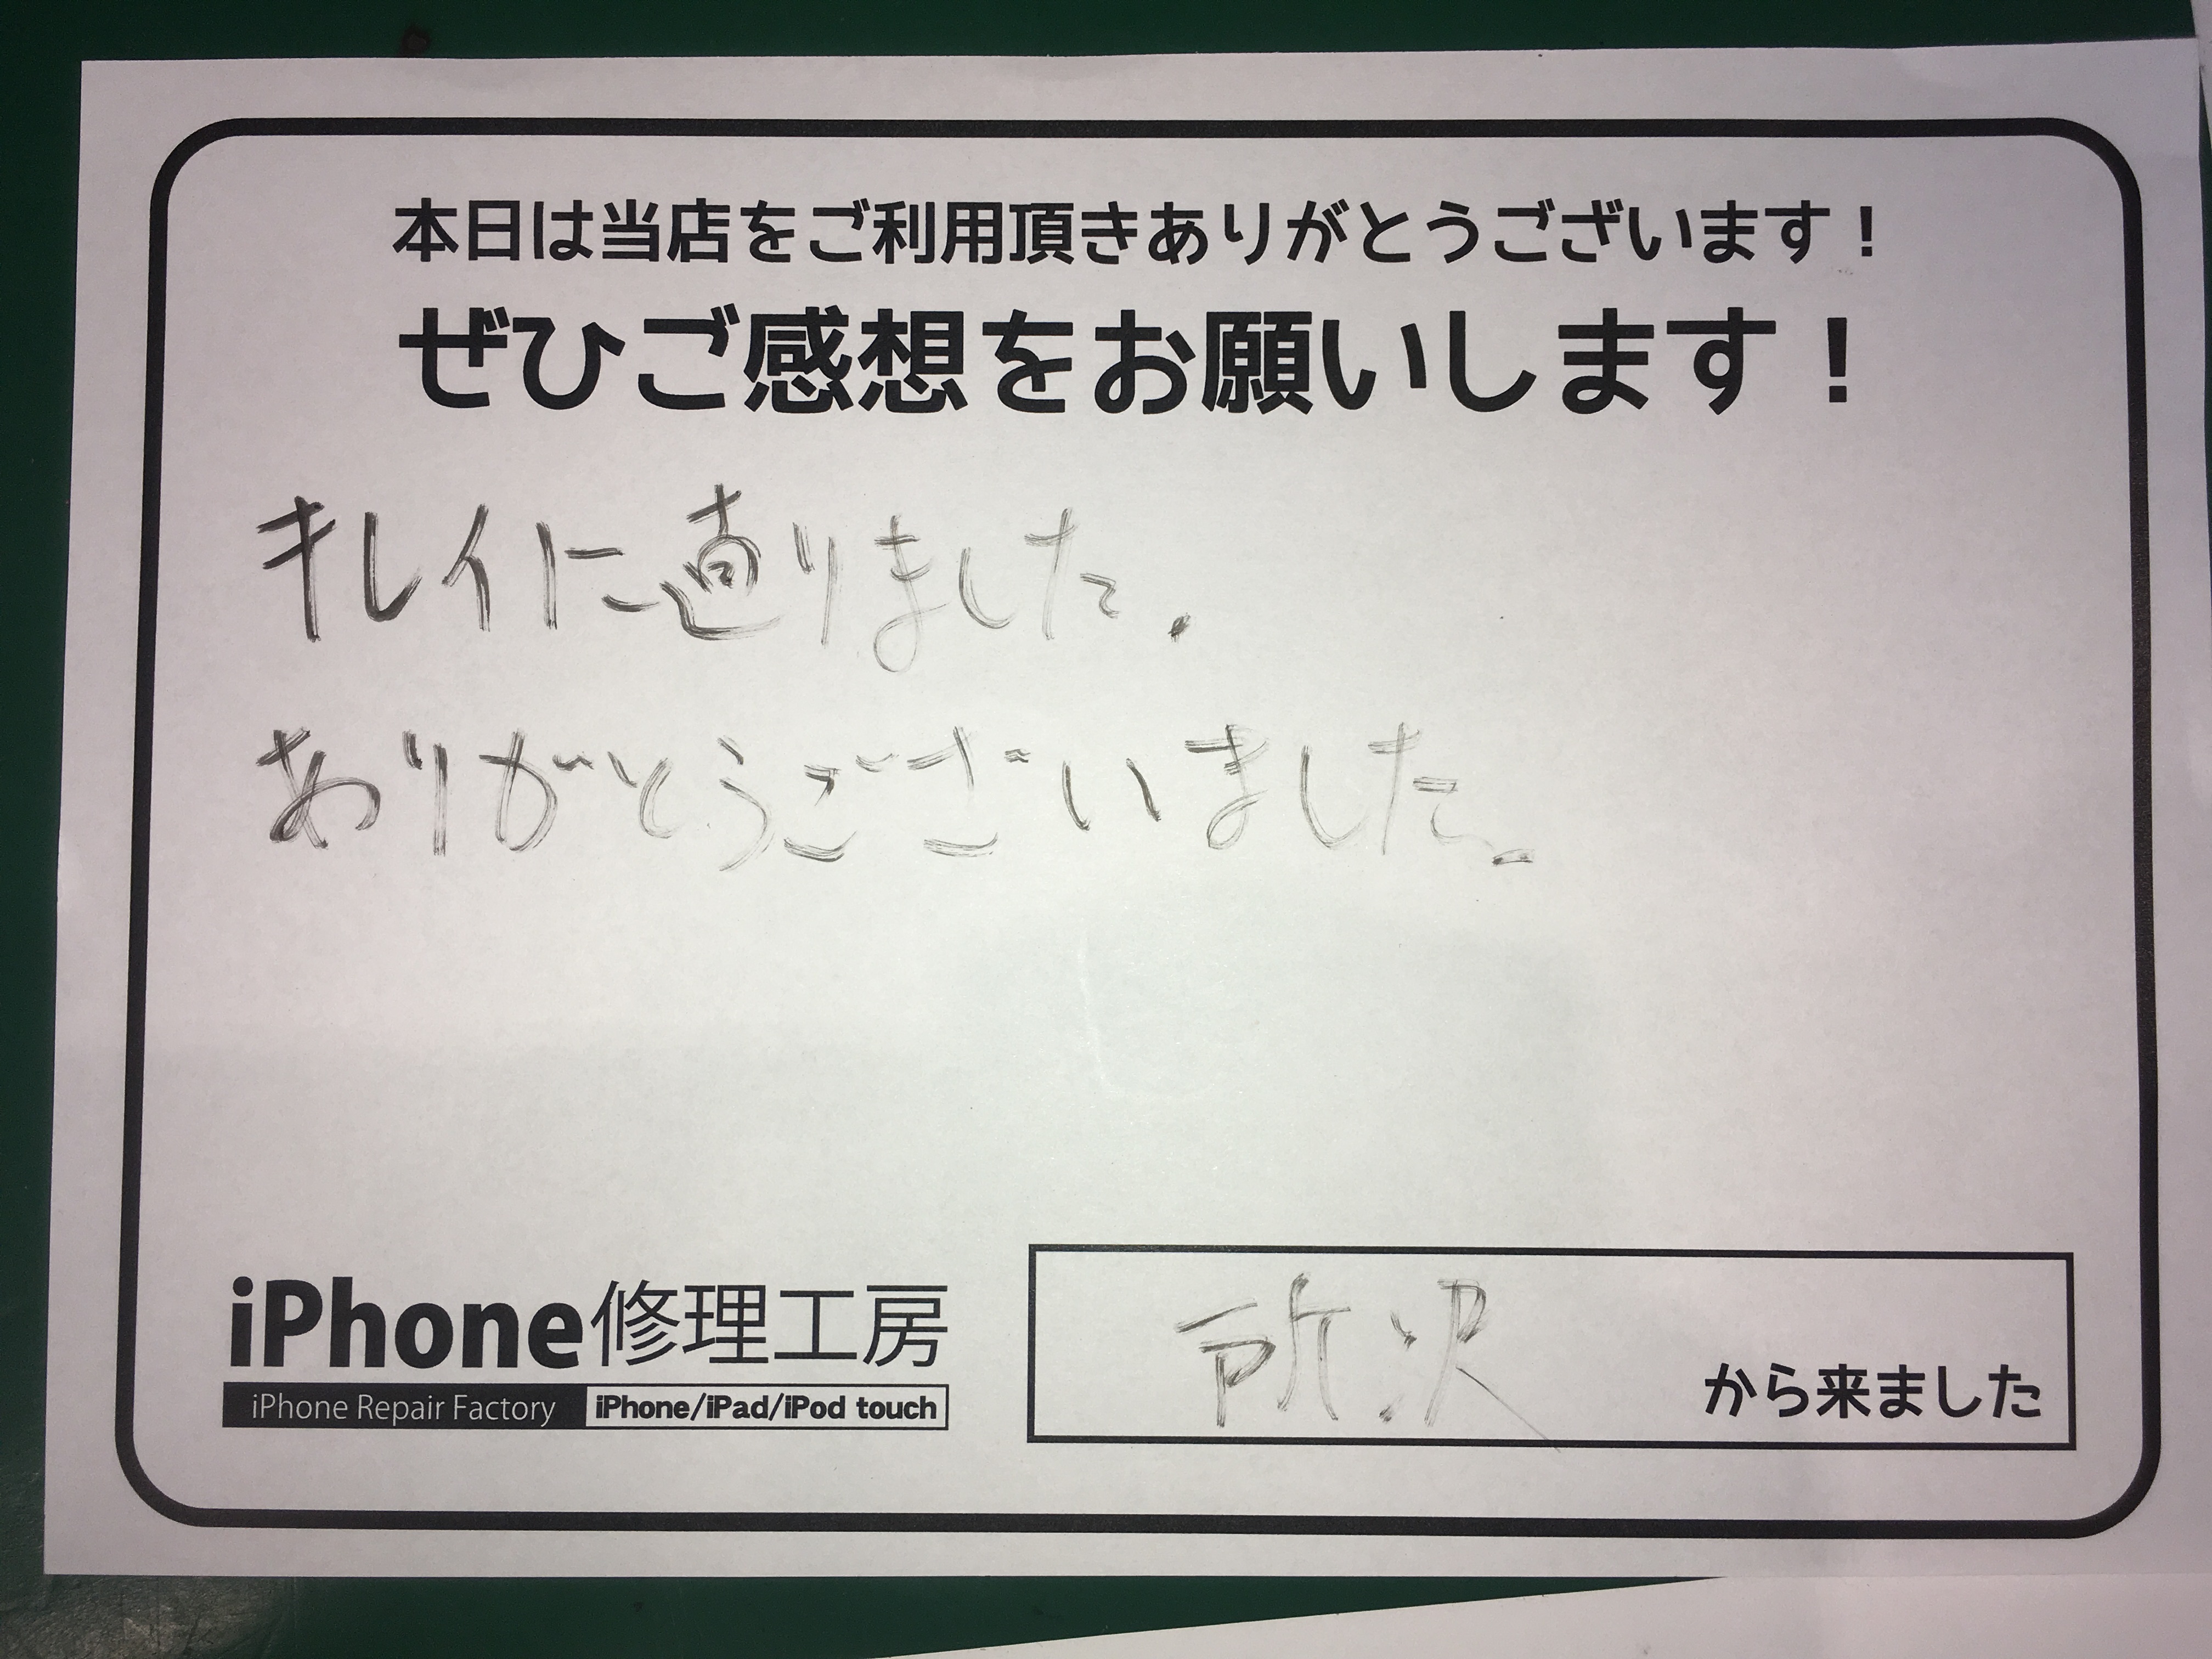 本日は当店をご利用頂きありがとうございます！
ぜひご感想をお願いします！
キレイに直りました.
ありがとうございました.
iPhone修理工房
iPhone Repair Factory iPhone/iPad/iPod touch
所沢 から来ました